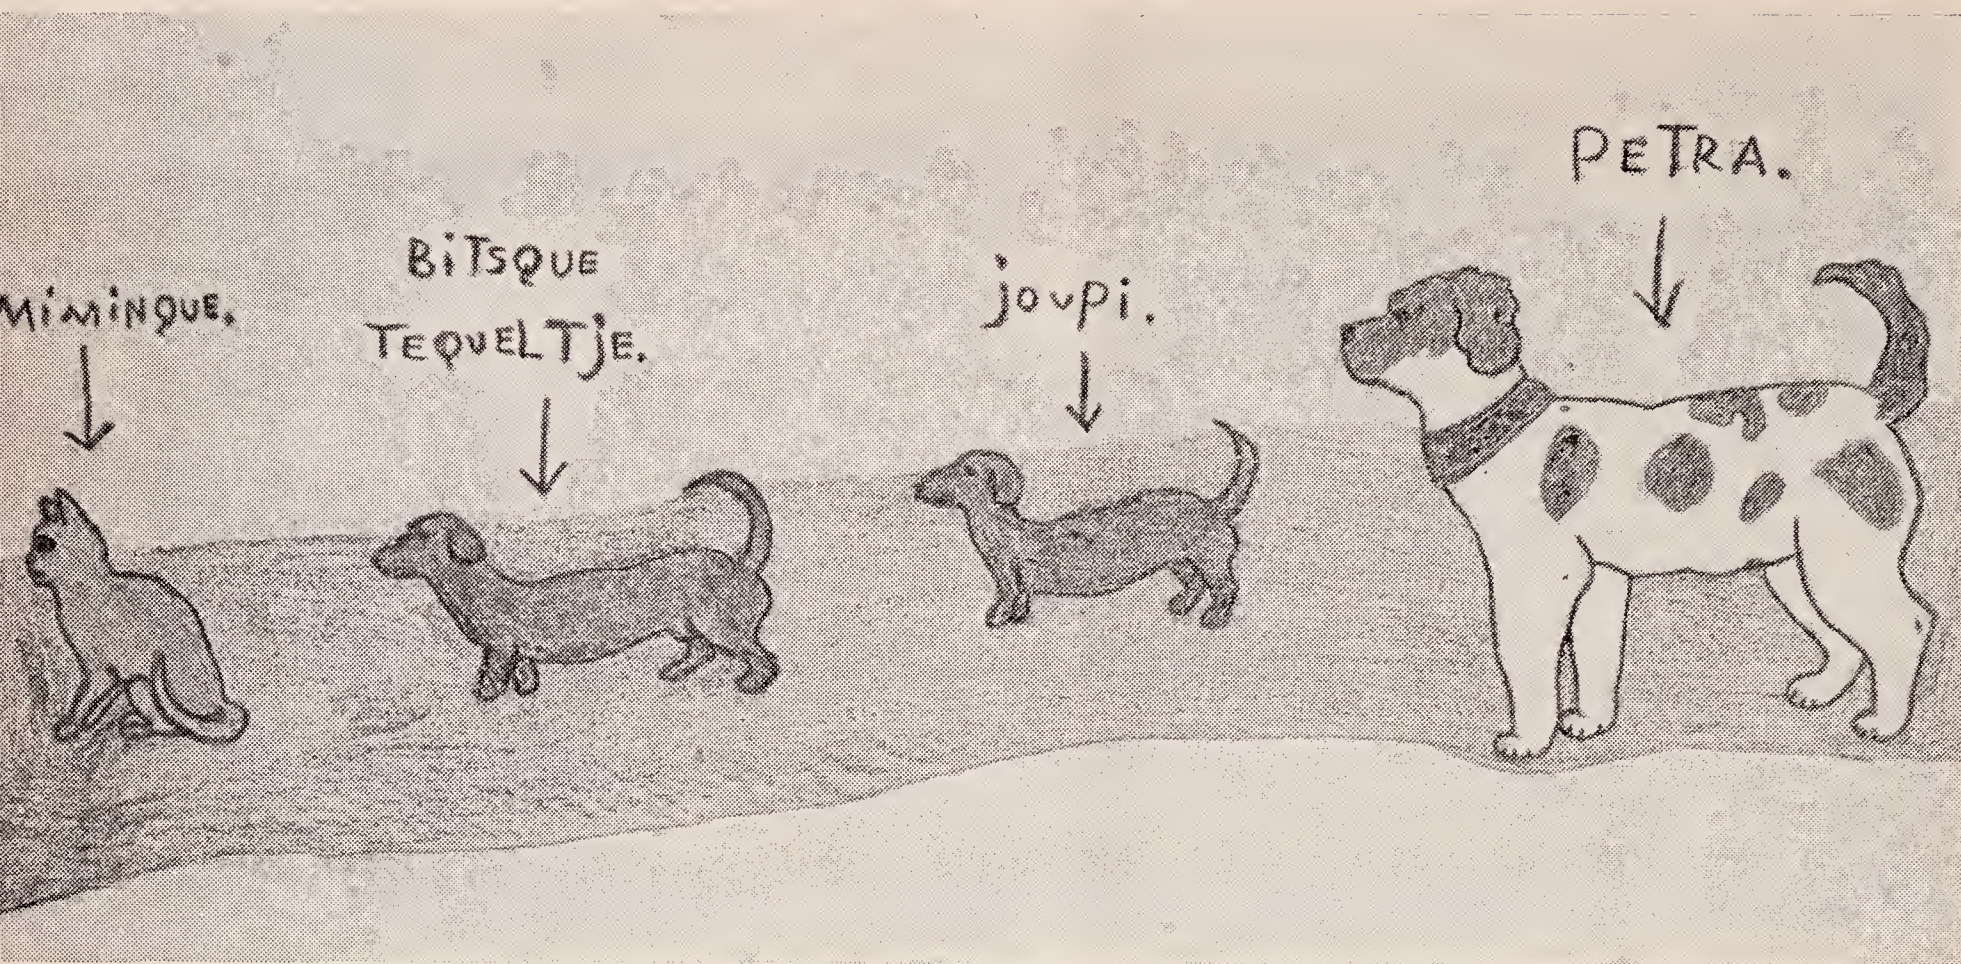 MiMiNQUE.
BiTSQUE
TEQUELTjE.
joupi.
PETRA.